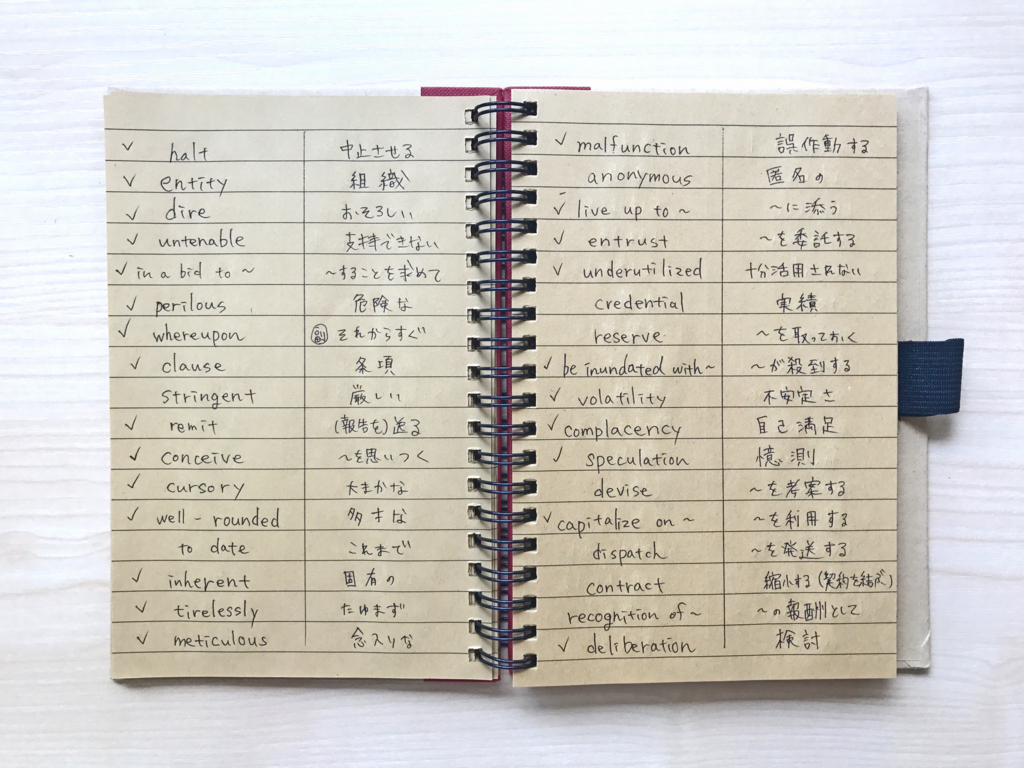 ✓ halt 中止させる
✓ entity 組織
✓ dire おそろしい
✓ untenable 支持できない
✓ in a bid to ~ ~することを求めて
✓ perilous 危険な
✓ whereupon 副 それからすぐ
✓ clause 条項
stringent 厳しい
✓ remit (報告を)送る
✓ conceive ~を思いつく
✓ cursory 大まかな
✓ well-rounded 多才な
to date これまで
✓ inherent 固有の
✓ tirelessly たゆまず
✓ meticulous 念入りな
✓ malfunction 誤作動する
anonymous 匿名の
✓ live up to ~ ~に添う
✓ entrust ~を委託する
✓ underutilized 十分活用されない
credential 実績
reserve ~を取っておく
✓ be inundated with ~ ~が殺到する
✓ volatility 不安定さ
✓ complacency 自己満足
✓ speculation 憶測
devise ~を考案する
✓ capitalize on ~ ~を利用する
dispatch ~を発送する
contract 縮小する(契約を結ぶ)
recognition of ~ ~の報酬として
✓ deliberation 検討